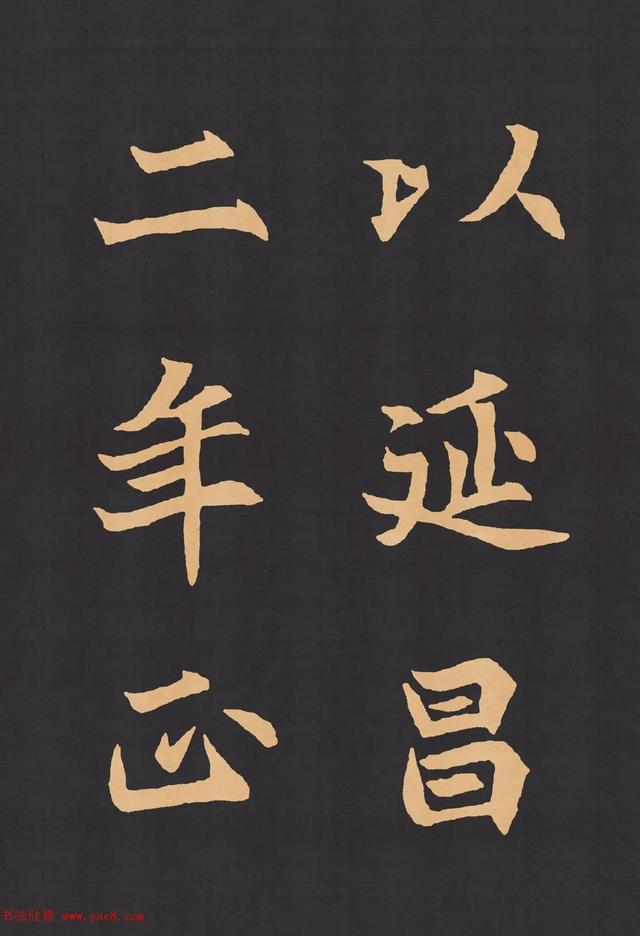 以延昌
二年正
书法欣赏 www.yac8.com